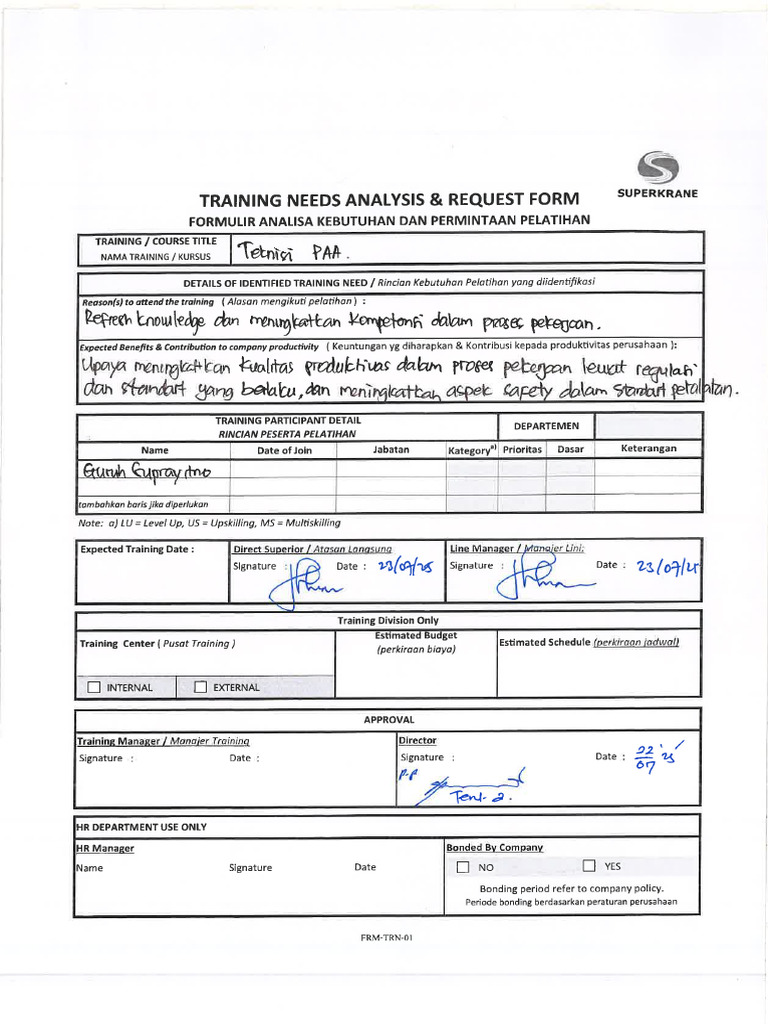 SUPERKRANE
TRAINING NEEDS ANALYSIS & REQUEST FORM
FORMULIR ANALISA KEBUTUHAN DAN PERMINTAAN PELATIHAN
TRAINING / COURSE TITLE
NAMA TRAINING / KURSUS
Teknisi PAA.
DETAILS OF IDENTIFIED TRAINING NEED / Rincian Kebutuhan Pelatihan yang diidentifikasi
Reason(s) to attend the training ( Alasan mengikuti pelatihan ) :
Refresh knowledge dan meningkatkan kompetensi dalam proses pekerjaan.
Expected Benefits & Contribution to company productivity ( Keuntungan yg diharapkan & Kontribusi kepada produktivitas perusahaan ):
Upaya meningkatkan kualitas produktivas dalam proses pekerjaan lewat regulasi
dan standart yang berlaku, dan meningkatkan aspek safety dalam standart peralatan.
TRAINING PARTICIPANT DETAIL
RINCIAN PESERTA PELATIHAN
DEPARTEMEN
Name Date of Join Jabatan Kategory a) Prioritas Dasar Keterangan
Guruh
tambahkan baris jika diperlukan
Note: a) LU = Level Up, US = Upskilling, MS = Multiskilling
Expected Training Date :
Direct Superior / Atasan Langsung
Signature : Date : 23/07/25
Line Manager / Manajer Lini:
Signature : Date : 23/07/25
Training Division Only
Training Center ( Pusat Training )
INTERNAL EXTERNAL
Estimated Budget
(perkiraan biaya)
Estimated Schedule (perkiraan jadwal)
APPROVAL
Training Manager / Manajer Training
Signature : Date :
Director
Signature : Date : 22/07 '25
P.P
HR DEPARTMENT USE ONLY
HR Manager
Name Signature Date
Bonded By Company
NO YES
Bonding period refer to company policy.
Periode bonding berdasarkan peraturan perusahaan
FRM-TRN-01